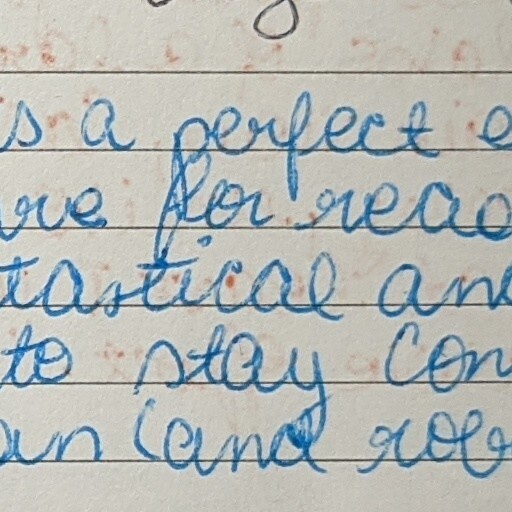 s a perfect e
ve for read
tastical and
to stay con
an (and rob